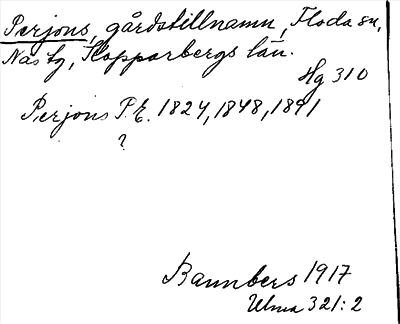 Perjons, gårdstillnamn, Floda sn,
Näs tg, Kopparbergs län.
Hg 310
Perjons P. E. 1824, 1848, 1891
?
Bannbers 1917
Ulma 321:2